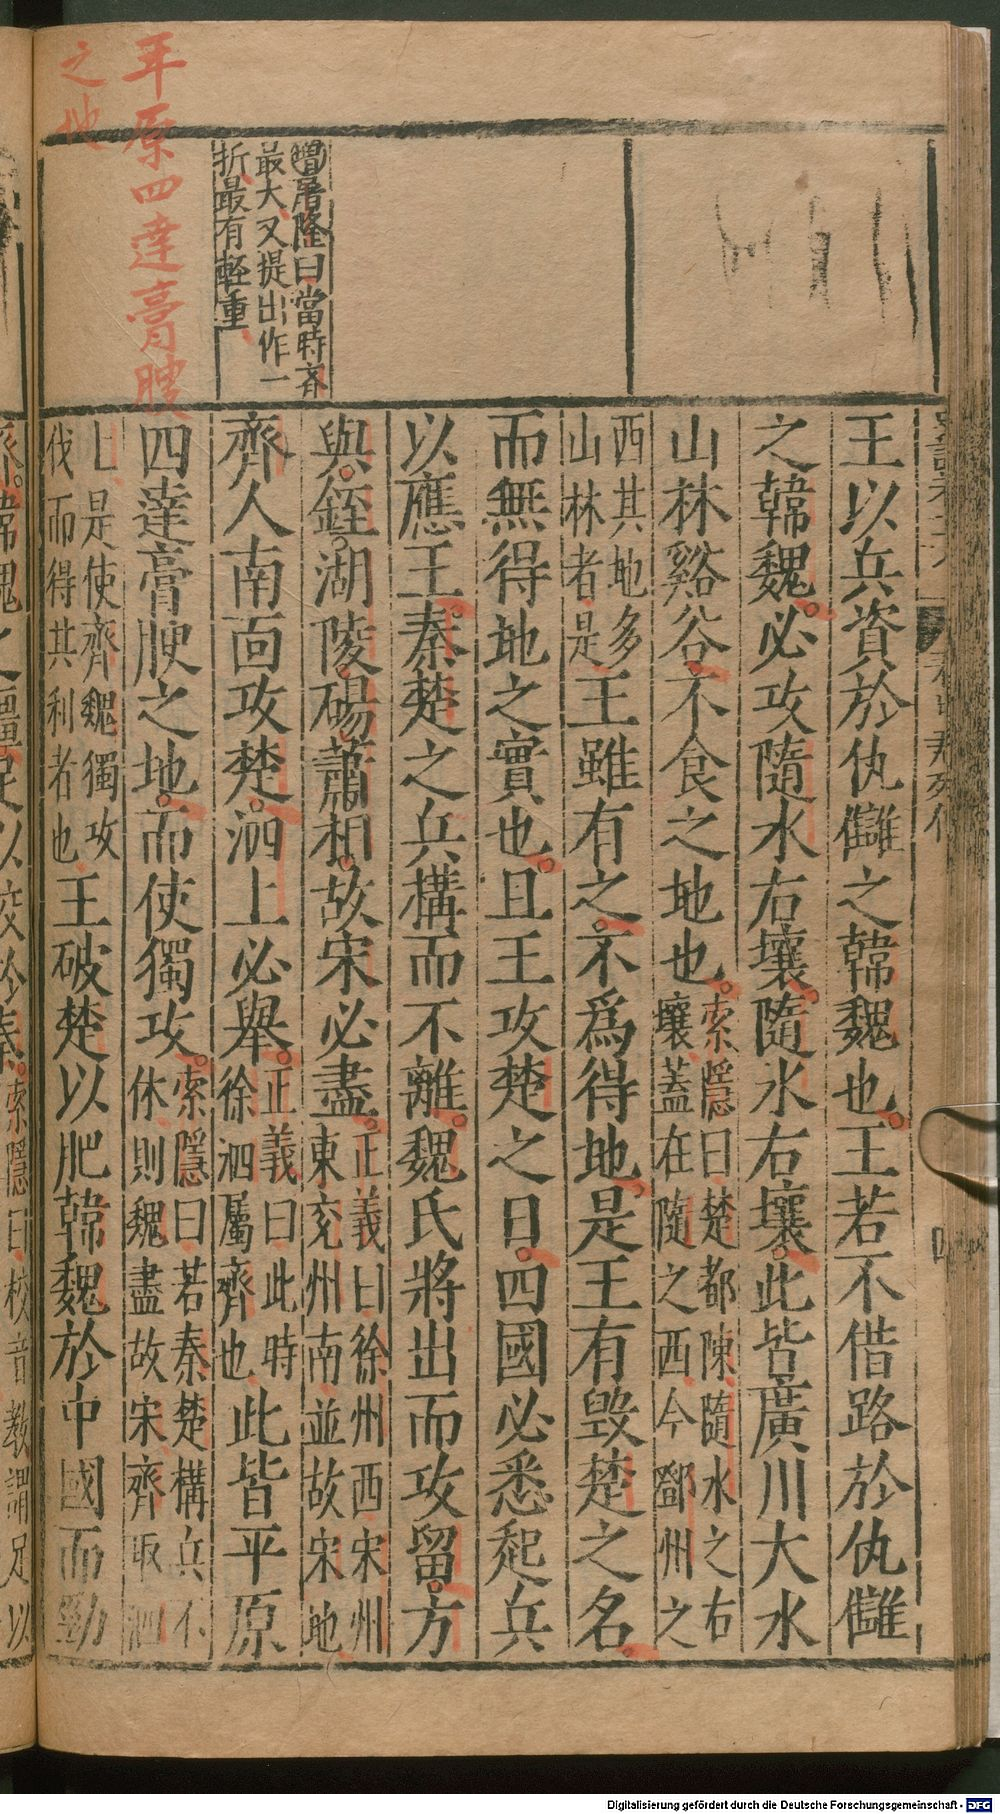 王以兵資於仇讎之韓魏也。王若不借路於仇讎
之韓魏。必攻隨水右壤。隨水右壤。此皆廣川大水
山林谿谷不食之地也。索隱曰楚都陳隨水之右
壤蓋在隨之西今鄧州之
西其地多
山林者是王雖有之。不爲得地。是王有毀楚之名。
而無得地之實也。且王攻楚之日。四國必悉起兵
以應王。秦楚之兵構而不離。魏氏將出而攻留。方
與。銍。湖陵。碭。蕭。相。故宋必盡。正義曰徐州西宋州
東兖州南並故宋地
齊人南面攻楚。泗上必舉。正義曰此時
徐泗屬齊也此皆平原
四達膏腴之地。而使獨攻。索隱曰若秦楚構兵不
休則魏盡故宋齊取泗
上是使齊魏獨攻
伐而得其利者也王破楚以肥韓魏於中國而勁
增屠隆曰當時齊
最大又提出作一
折最有輕重
平原四達膏腴
之地
索隱曰校音教謂足以
Digitalisierung gefördert durch die Deutsche Forschungsgemeinschaft - DFG